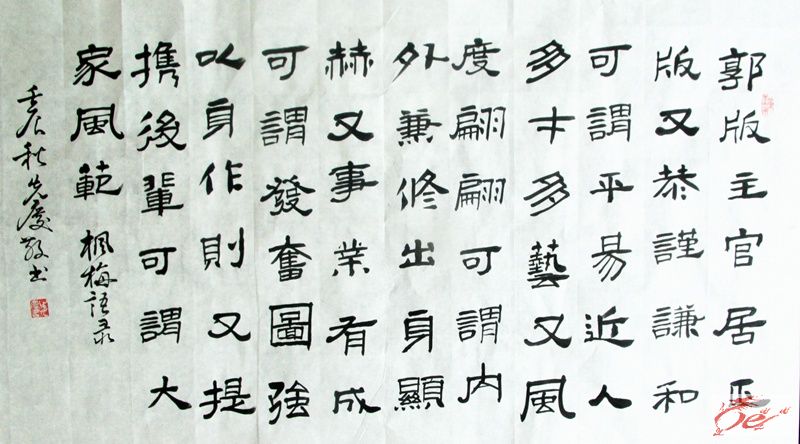 郭版主官居正
版又恭謹謙和
可謂平易近人
多才多藝又風
度翩翩可謂內
外兼修出身顯
赫又事業有成
可謂發奮圖強
以身作則又提
携後輩可謂大
家風範 楓梅語录
壬辰秋先慶敬书